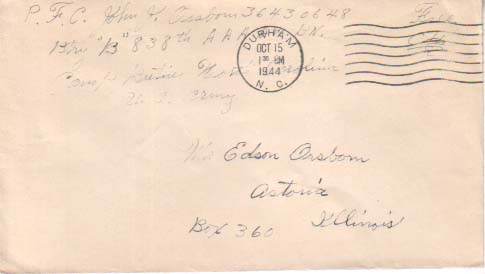 P.F.C. John V. Orsborn 36430648
Btry "B" 838th A.A.A. Bn.
Camp Butner North Carolina
U.S. Army
Free
DURHAM
OCT 15
1 30 PM
1944
N. C.
Edson Orsborn
Astoria
Box 360 Illinois